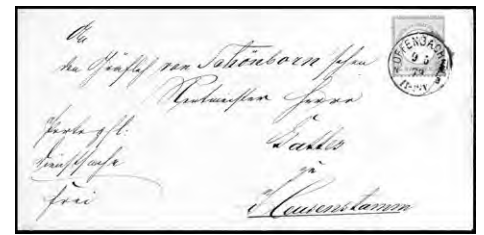 An
den Gräflich von Schönborn'schen
Rentmeister Herrn
zu
Heusenstamm
Portopfl:
Dienstsache
frei
OFFENBACH
9 5